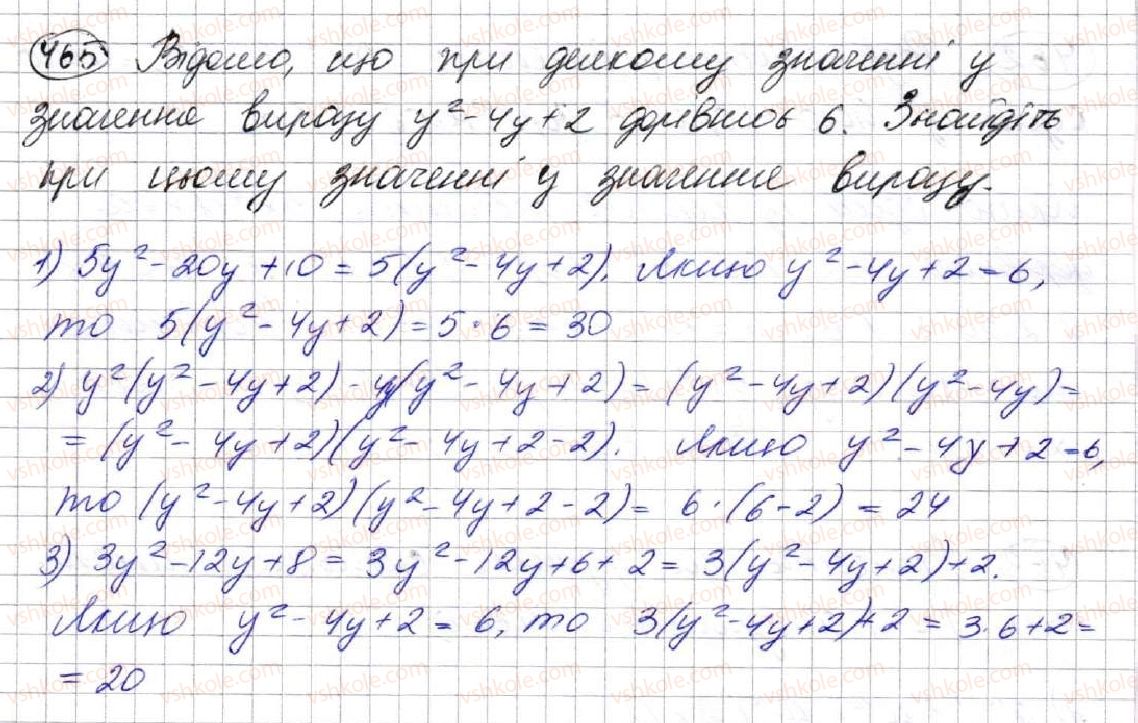 465 Відомо, що при деякому значенні y
значення виразу y² - 4y + 2 дорівнює 6. Знайдіть
при цьому значенні y значення виразу.
1) 5y² - 20y + 10 = 5(y² - 4y + 2). Якщо y² - 4y + 2 = 6,
то 5(y² - 4y + 2) = 5 · 6 = 30
2) y²(y² - 4y + 2) - 4y(y² - 4y + 2) = (y² - 4y + 2)(y² - 4y) =
= (y² - 4y + 2)(y² - 4y + 2 - 2). Якщо y² - 4y + 2 = 6,
то (y² - 4y + 2)(y² - 4y + 2 - 2) = 6 · (6 - 2) = 24
3) 3y² - 12y + 8 = 3y² - 12y + 6 + 2 = 3(y² - 4y + 2) + 2.
Якщо y² - 4y + 2 = 6, то 3(y² - 4y + 2) + 2 = 3 · 6 + 2 =
= 20